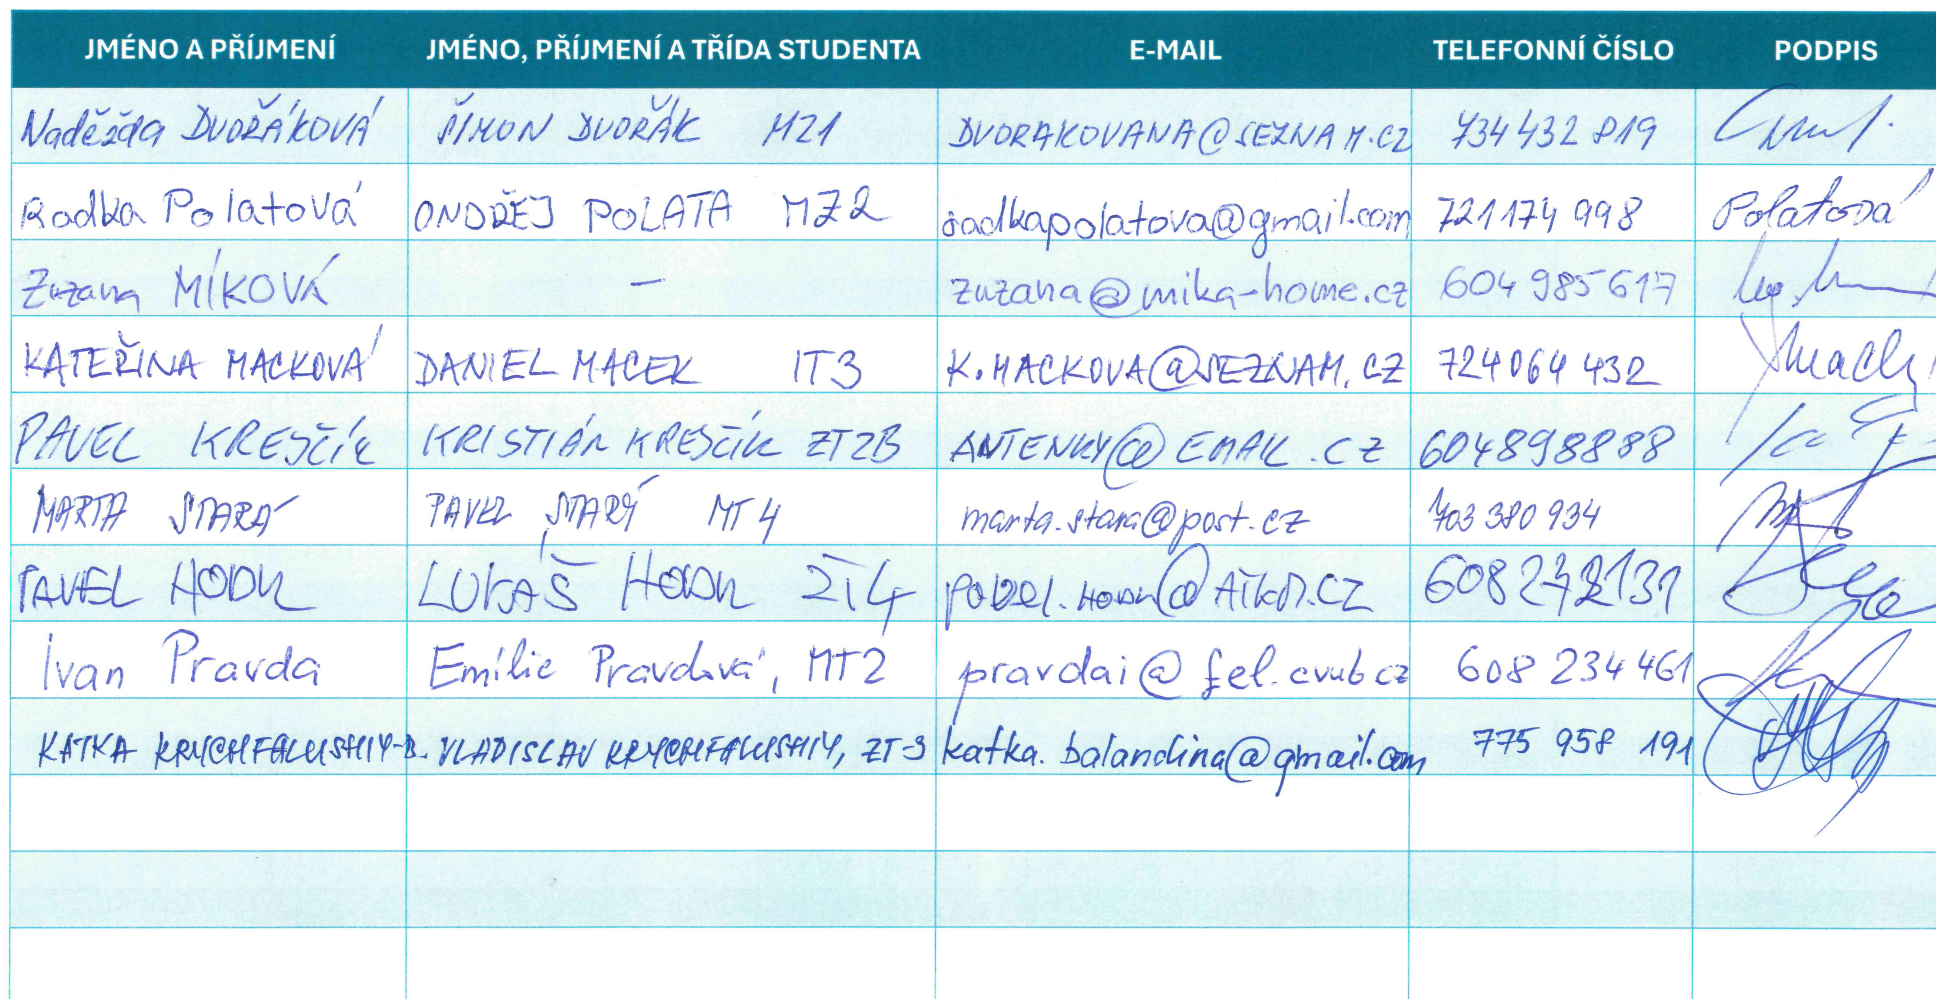 JMÉNO A PŘÍJMENÍ JMÉNO, PŘÍJMENÍ A TŘÍDA STUDENTA E-MAIL TELEFONNÍ ČÍSLO PODPIS
Naděžda DVOŘÁKOVÁ ŠIMON DVOŘÁK MZ1 DVORAKOVANA@SEZNAM.CZ 734 432 819
Radka Polatová ONDŘEJ POLATA MZ2 radkapolatova@gmail.com 721 174 998 Polatová
Zuzana MÍKOVÁ – zuzana@mika-home.cz 604 985 617
KATEŘINA MACKOVÁ DANIEL MACEK IT3 K.MACKOVA@SEZNAM.CZ 724 064 432
PAVEL KREJČÍK KRISTIÁN KREJČÍK ZT2B ANTENKY@EMAIL.CZ 604898888
MARTA STARÁ PAVEL STARÝ MT4 marta.stara@post.cz 703 380 934
PAVEL LUKÁŠ 608
Ivan Pravda Emílie Pravdová, MT2 pravdai@fel.cvut.cz 608 234 461
KATKA VLADISLAV ZT-3 katka.balandina@gmail.com 775 958 191